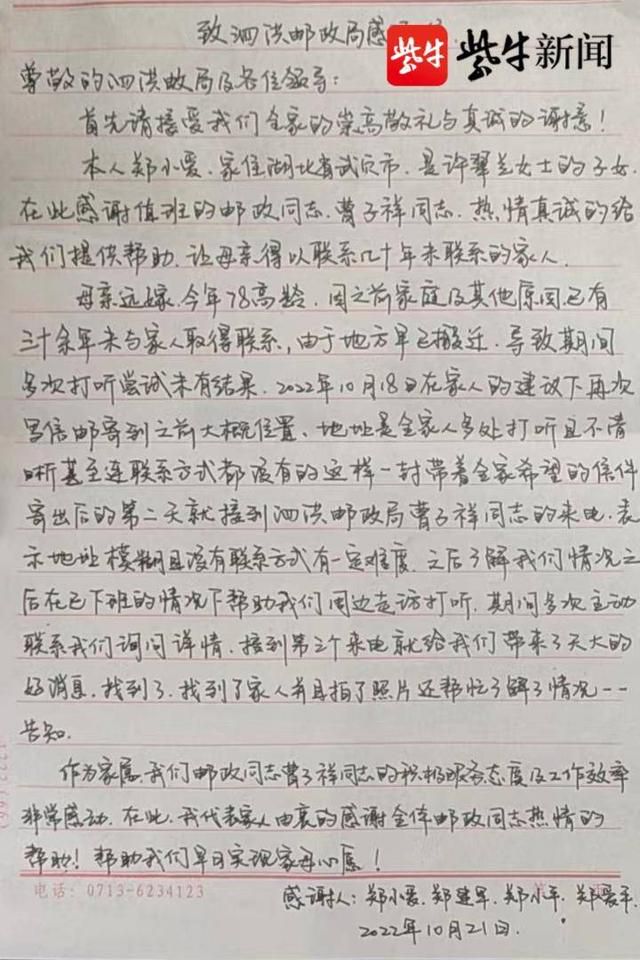 致泗洪邮政局感
紫牛 紫牛新闻
尊敬的泗洪邮政局及各位领导：
首先请接受我们全家的崇高敬礼与真诚的谢意！
本人郑小爱.家住湖北省武穴市.是许翠兰女士的子女.
在此感谢值班的邮政同志.曹子祥同志.热情真诚的给
我们提供帮助.让母亲得以联系几十年未联系的家人.
母亲远嫁.今年78高龄.因之前家庭及其他原因.已有
三十余年未与家人取得联系,由于地方早已搬迁.导致期间
多次打听尝试未有结果.2022年10月18日在家人的建议下再次
写信邮寄到之前大概位置、地址是全家人多处打听且不清
晰甚至连联系方式都没有的这样一封带着全家希望的信件
寄出后的第二天就接到泗洪邮政局曹子祥同志的来电.表
示地址模糊且没有联系方式有一定难度.之后了解我们情况之
后在已下班的情况下帮助我们周边走访打听.期间多次主动
联系我们询问详情.接到第三个来电就给我们带来了天大的
好消息.找到了.找到了家人并且拍了照片还帮忙了解了情况一一
告知.
作为家属.我们邮政同志曹子祥同志的积极服务态度及工作效率
非常感动.在此.我代表家人由衷的感谢全体邮政同志热情的
帮助！帮助我们早日实现家母心愿！
电话：0713-6234123
感谢人：郑小爱.郑建军.郑小平.郑爱平.
2022年10月21日.